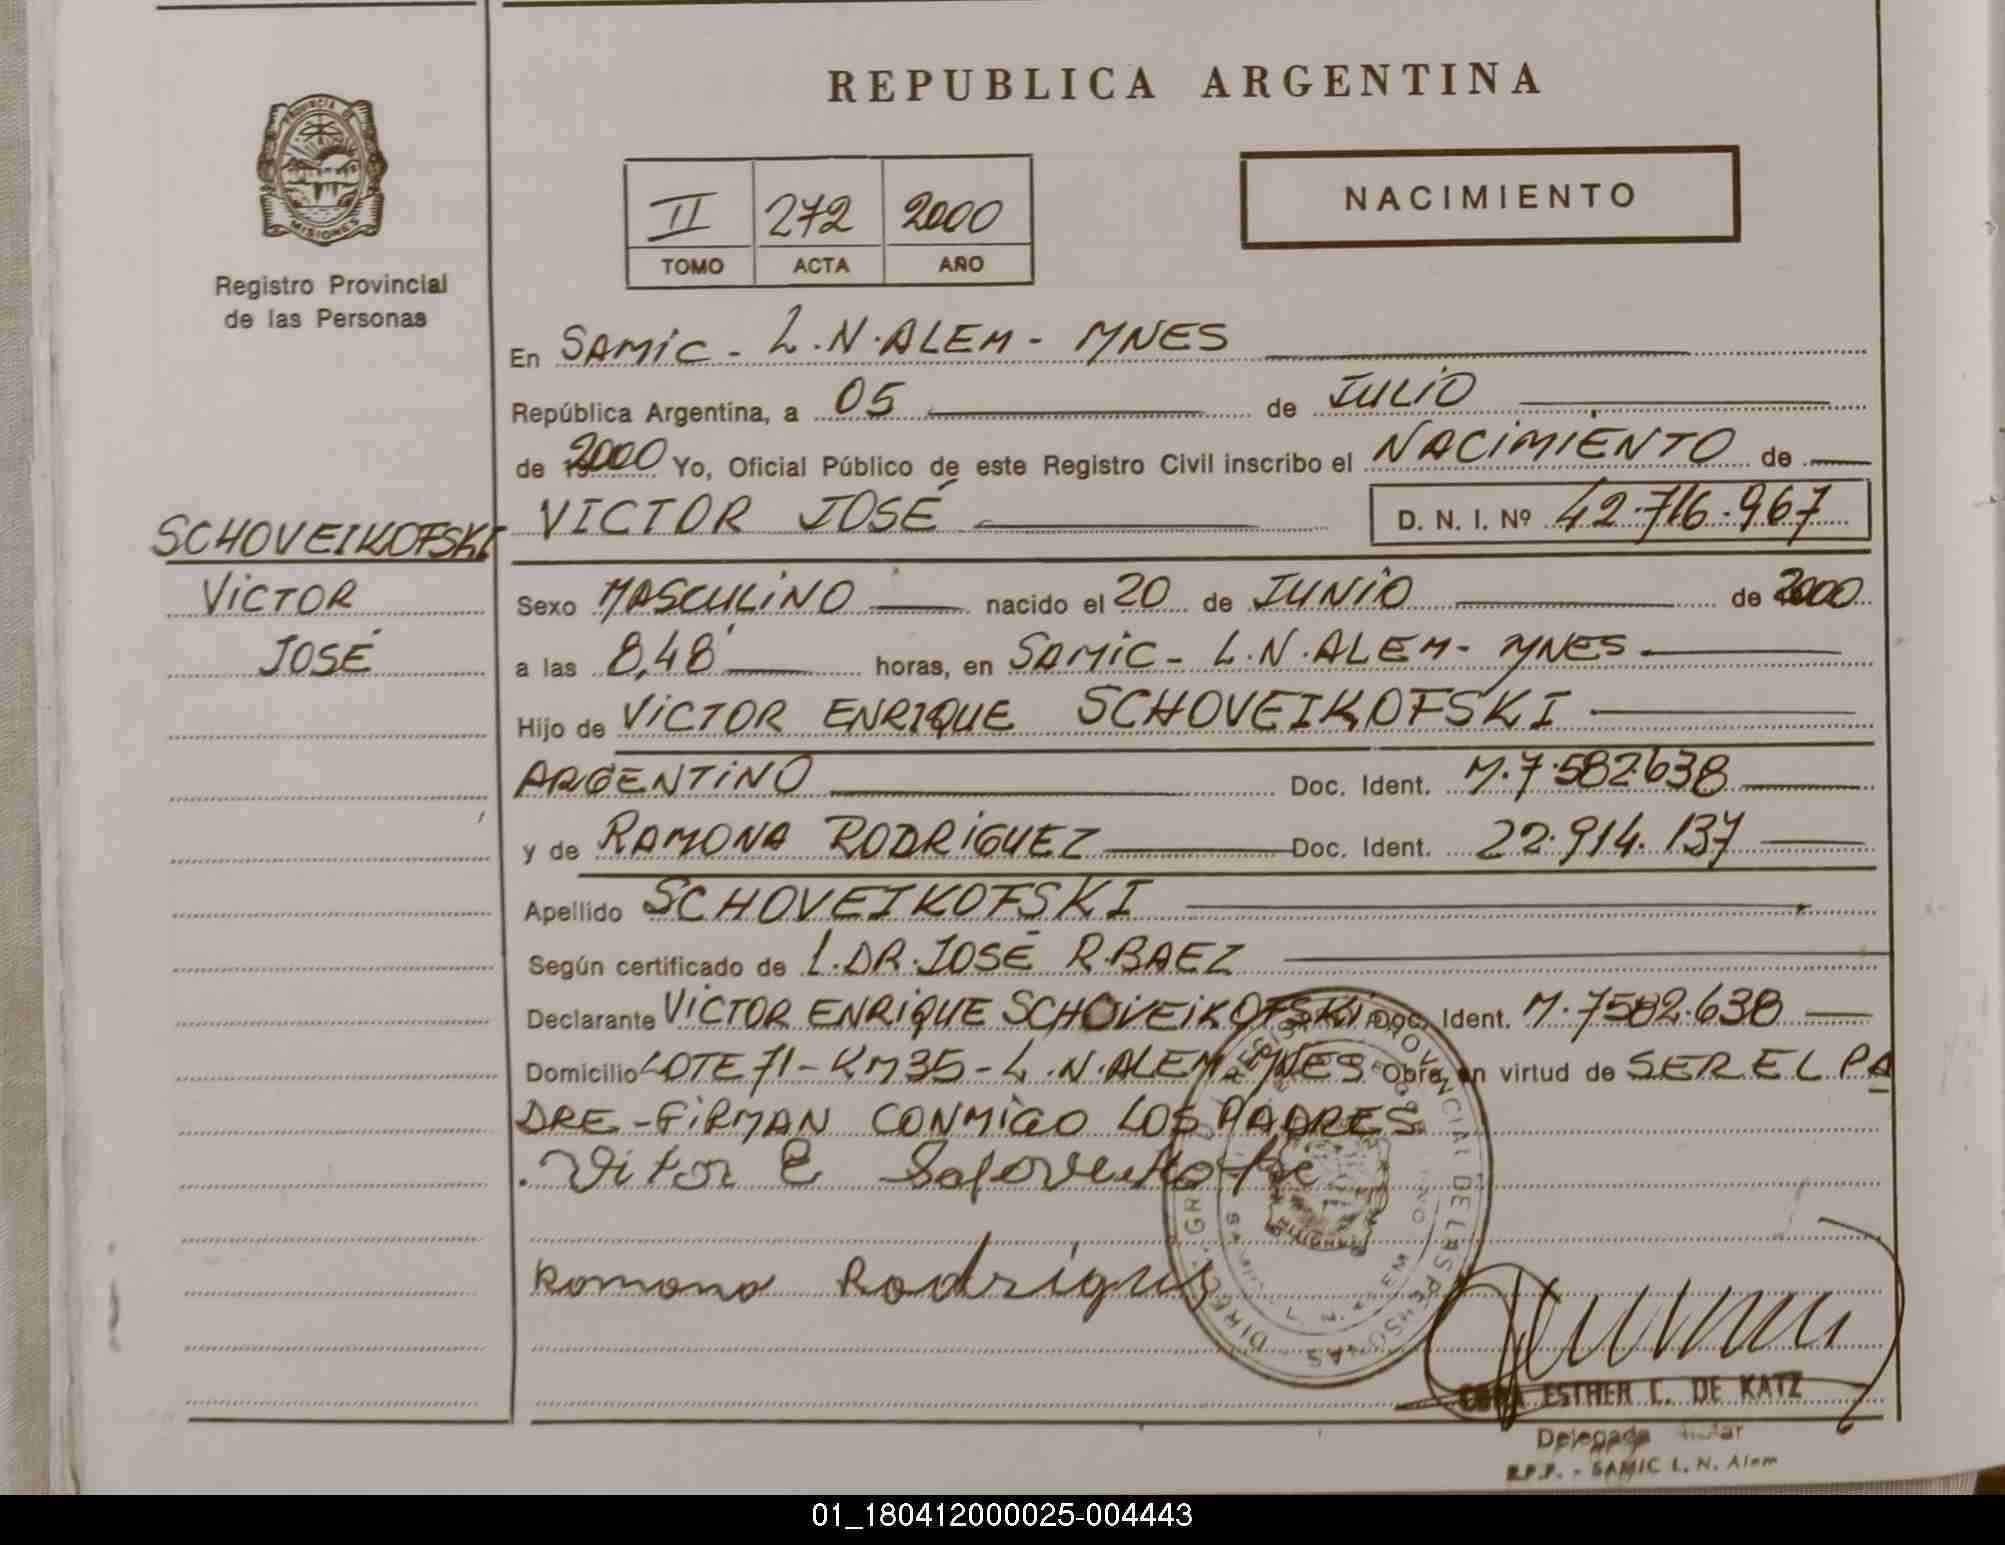 REPUBLICA ARGENTINA
PROVINCIA DE
MISIONES
Registro Provincial
de las Personas
II 272 2000
TOMO ACTA AÑO
NACIMIENTO
En SAMIC - L.N.ALEM - MNES
República Argentina, a 05 de JULIO
de 2000 Yo, Oficial Público de este Registro Civil inscribo el NACIMIENTO de
SCHOVEIKOFSKI
VICTOR
JOSÉ
VICTOR JOSÉ D. N. I. Nº 42.716.967
Sexo MASCULINO nacido el 20 de JUNIO de 2000
a las 8,48 horas, en SAMIC - L.N.ALEM - MNES.
Hijo de VICTOR ENRIQUE SCHOVEIKOFSKI
ARGENTINO Doc. Ident. M.7.582.638
y de RAMONA RODRIGUEZ Doc. Ident. 22.914.137
Apellido SCHOVEIKOFSKI
Según certificado de L.DR.JOSÉ R.BAEZ
Declarante VICTOR ENRIQUE SCHOVEIKOFSKI Doc. Ident. M.7582.638
Domicilio LOTE 71 - KM 35 - L.N.ALEM - MNES Obra en virtud de SER EL PA
DRE - FIRMAN CONMIGO LOS PADRES
Vitor E
Romona Rodrigues
DIREC. GRAL. PROVINCIAL DE LAS PERSONAS
L. N. ALEM
MISIONES
ESTHER C. DE KATZ
Delegada
R.P.P. - SAMIC L. N. Alem
01_180412000025-004443